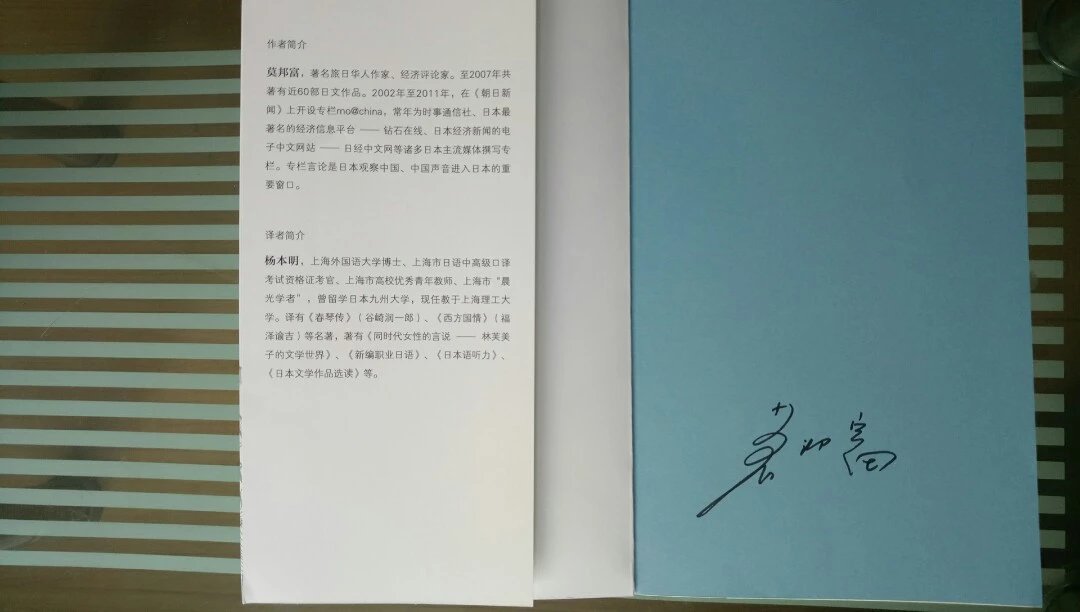 作者简介
莫邦富，著名旅日华人作家、经济评论家。至2007年共
著有近60部日文作品。2002年至2011年，在《朝日新
闻》上开设专栏mo@china，常年为时事通信社、日本最
著名的经济信息平台 —— 钻石在线、日本经济新闻的电
子中文网站 —— 日经中文网等诸多日本主流媒体撰写专
栏。专栏言论是日本观察中国、中国声音进入日本的重
要窗口。
译者简介
杨本明，上海外国语大学博士、上海市日语中高级口译
考试资格证考官、上海市高校优秀青年教师、上海市“晨
光学者”，曾留学日本九州大学，现任教于上海理工大
学。译有《春琴传》（谷崎润一郎）、《西方国情》（福
泽谕吉）等名著，著有《同时代女性的言说 —— 林芙美
子的文学世界》、《新编职业日语》、《日本语听力》、
《日本文学作品选读》等。
莫邦富